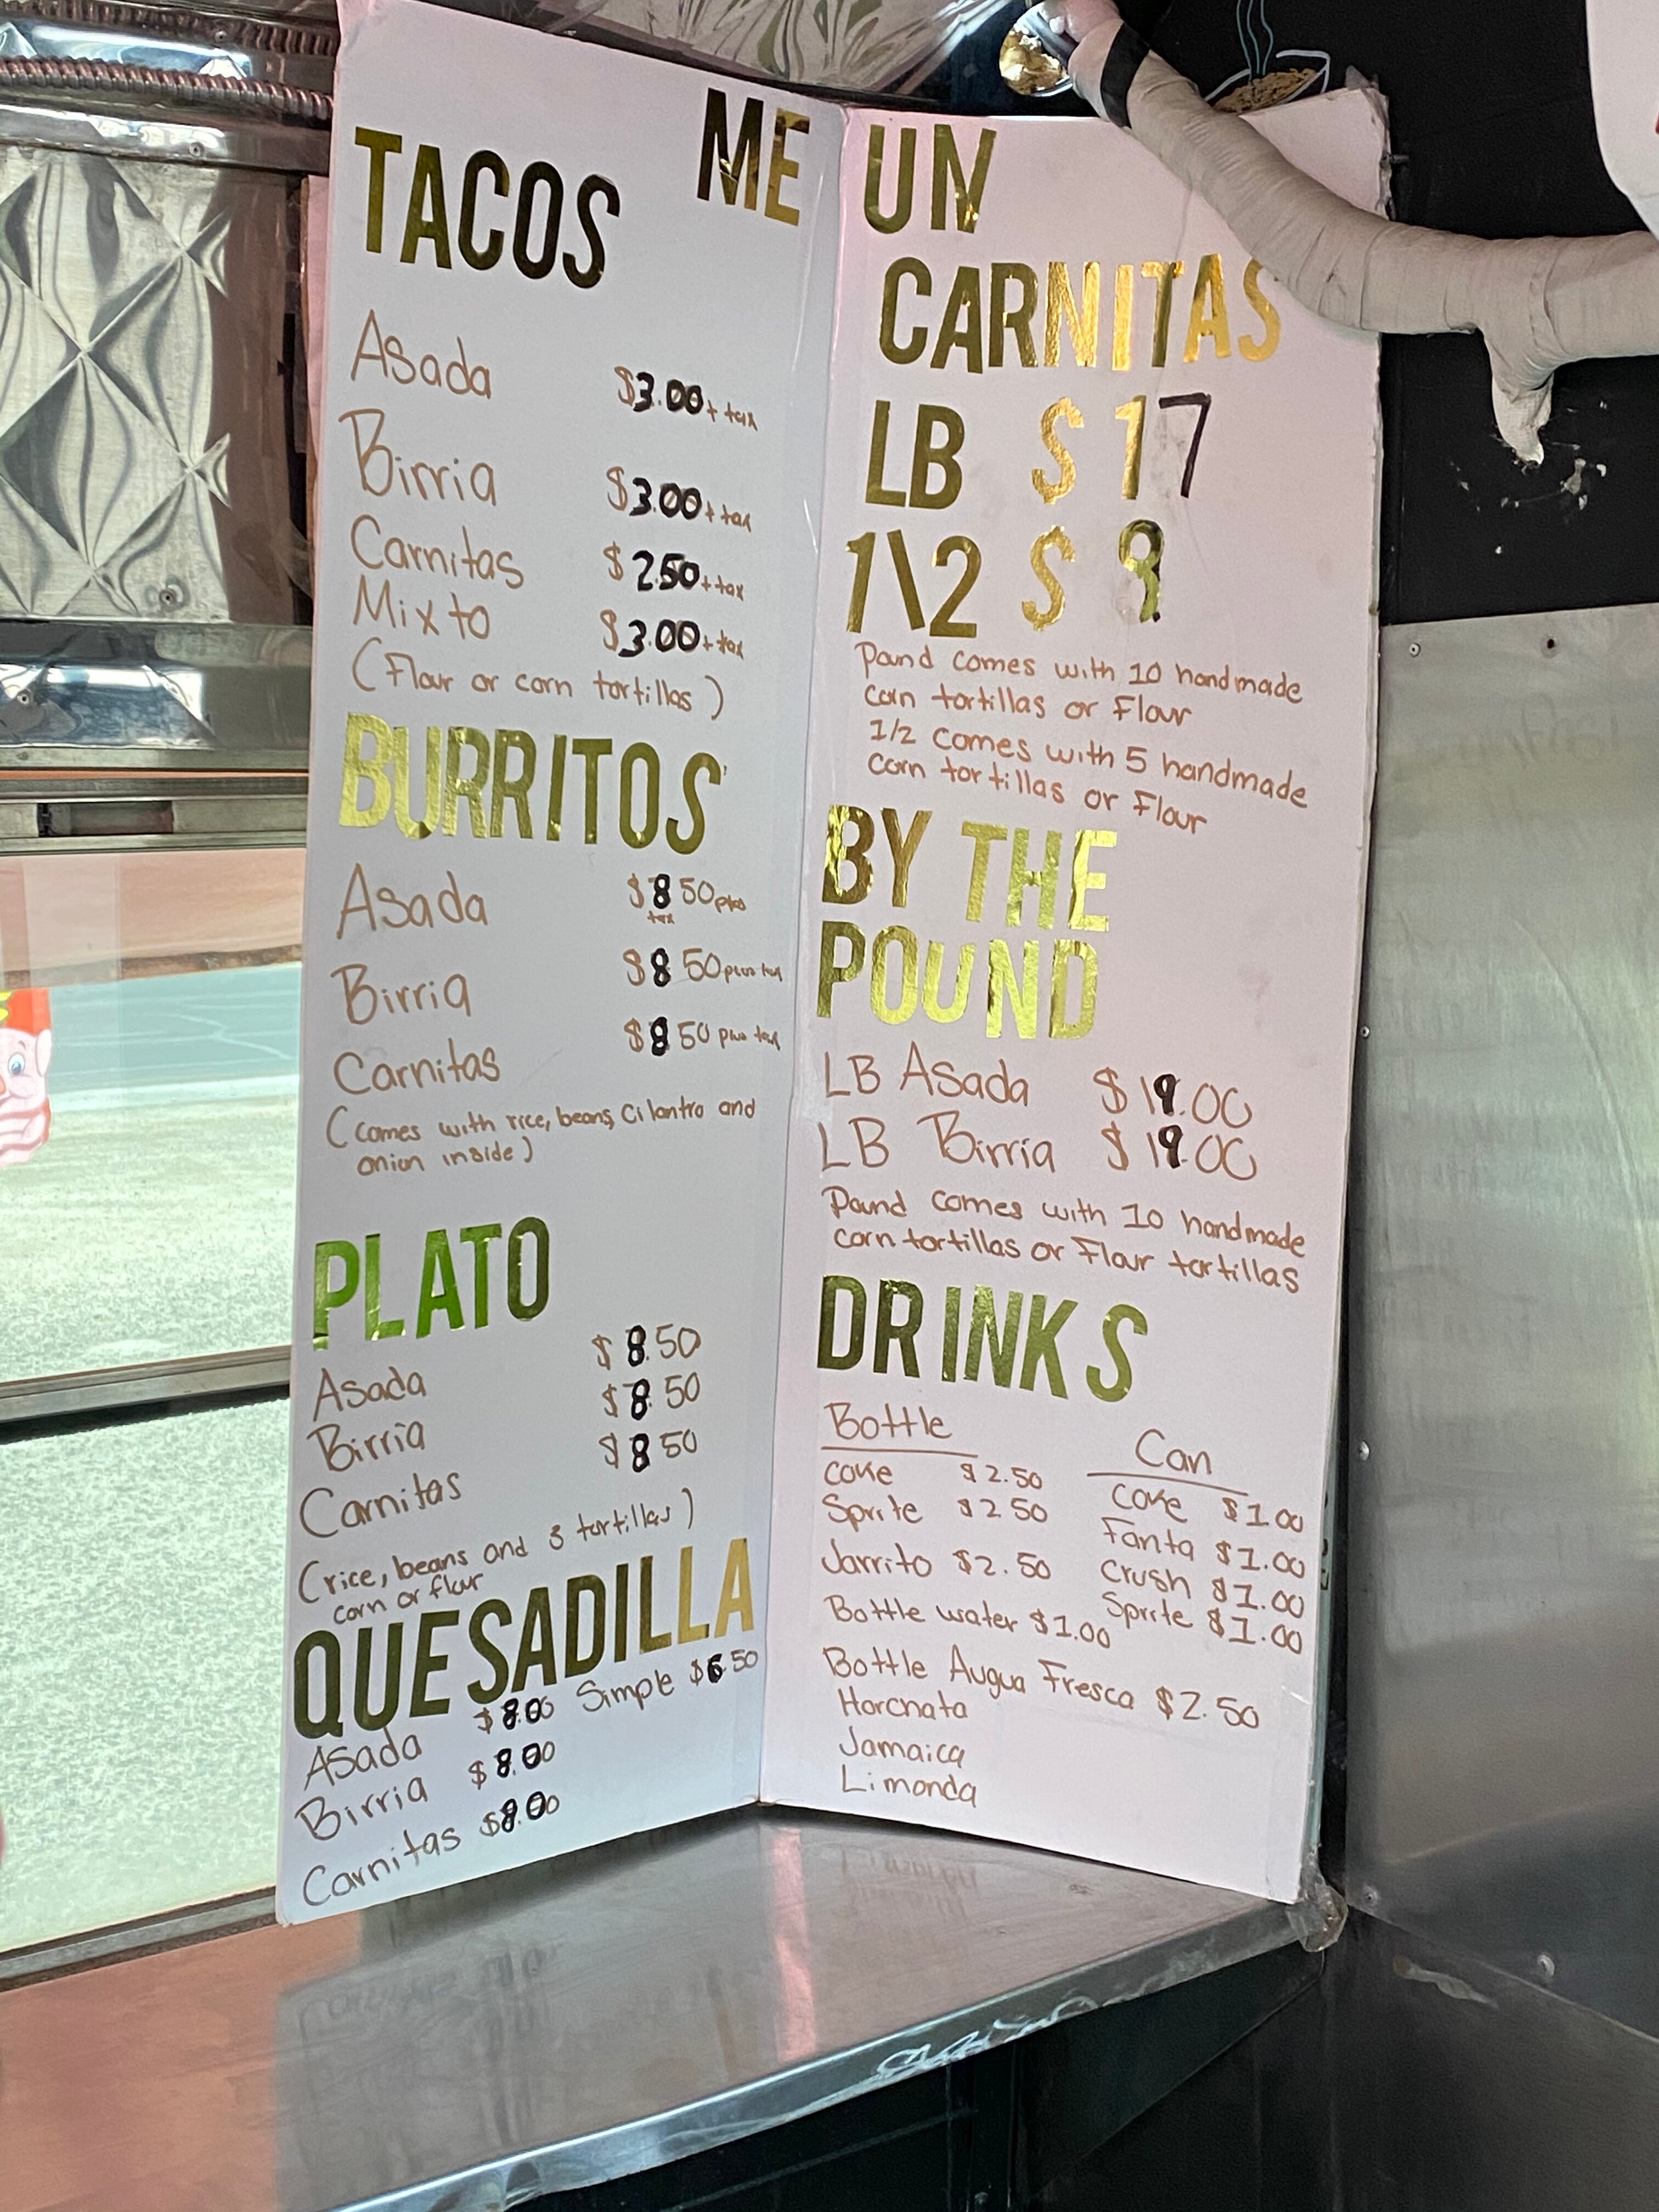 ME UN
TACOS
Asada $3.00 + tax
Birria $3.00 + tax
Carnitas $2.50 + tax
Mixto $3.00 + tax
(Flour or corn tortillas)
BURRITOS
Asada $8.50 plus
tax
Birria $8.50 plus tax
Carnitas $8.50 plus tax
(comes with rice, beans, cilantro and
onion inside)
PLATO
Asada $8.50
Birria $8.50
Carnitas $8.50
(rice, beans and 3 tortillas)
corn or flour
QUESADILLA
Simple $6.50
Asada $8.00
Birria $8.00
Carnitas $8.00
CARNITAS
LB $17
1\2 $9
Pound comes with 10 handmade
corn tortillas or Flour
1/2 comes with 5 handmade
corn tortillas or Flour
BY THE
POUND
LB Asada $19.00
LB Birria $19.00
Pound comes with 10 handmade
corn tortillas or Flour tortillas
DRINKS
Bottle
Coke $2.50
Sprite $2.50
Jarrito $2.50
Bottle water $1.00
Can
Coke $1.00
Fanta $1.00
Crush $1.00
Sprite $1.00
Bottle Augua Fresca $2.50
Horcnata
Jamaica
Limonda